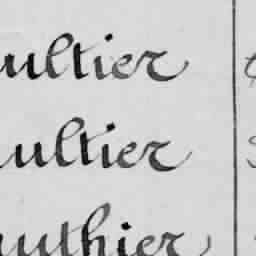 ultier
aultier
authier